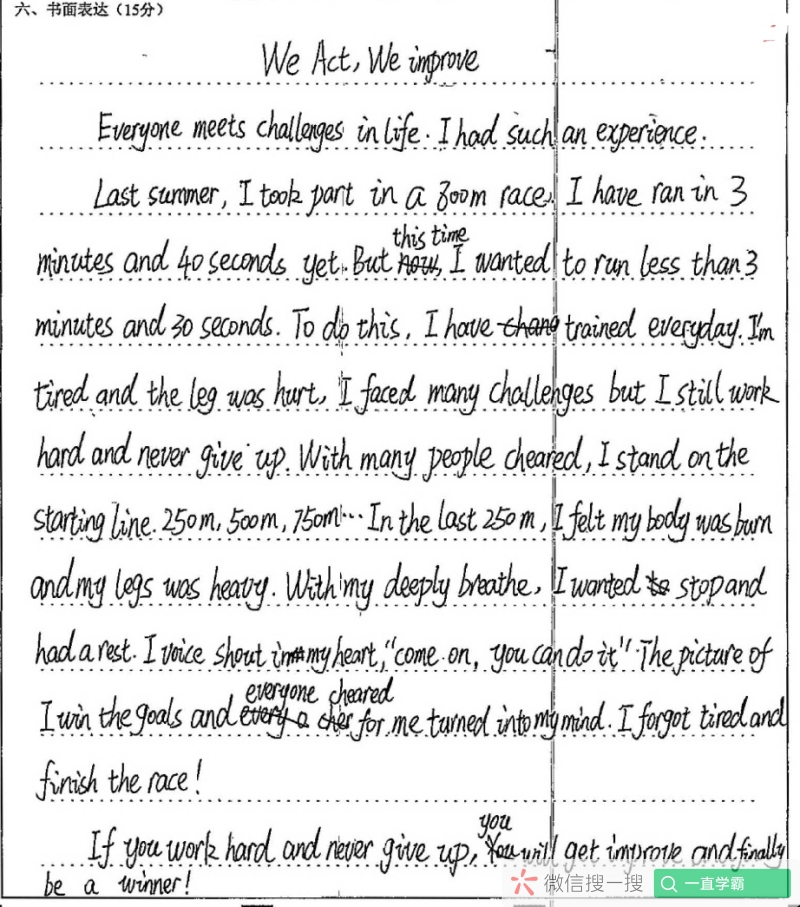 六、书面表达（15分）
We Act, We improve
Everyone meets challenges in life. I had such an experience.
Last summer, I took part in a 800m race. I have ran in 3
this time
minutes and 40 seconds yet. But now, I wanted to run less than 3
minutes and 30 seconds. To do this, I have chang trained everyday. I'm
tired and the leg was hurt, I faced many challenges but I still work
hard and never give up. With many people cheared, I stand on the
starting line. 250m, 500m, 750m... In the last 250m, I felt my body was burn
and my legs was heavy. With my deeply breathe, I wanted to stop and
had a rest. I voice shout in my heart, "come on, you can do it". The picture of
everyone cheared
I win the goals and every a cher for me turned into my mind. I forgot tired and
finish the race!
you
If you work hard and never give up, You will get improve and finally
be a winner!
微信搜一搜 一直学霸